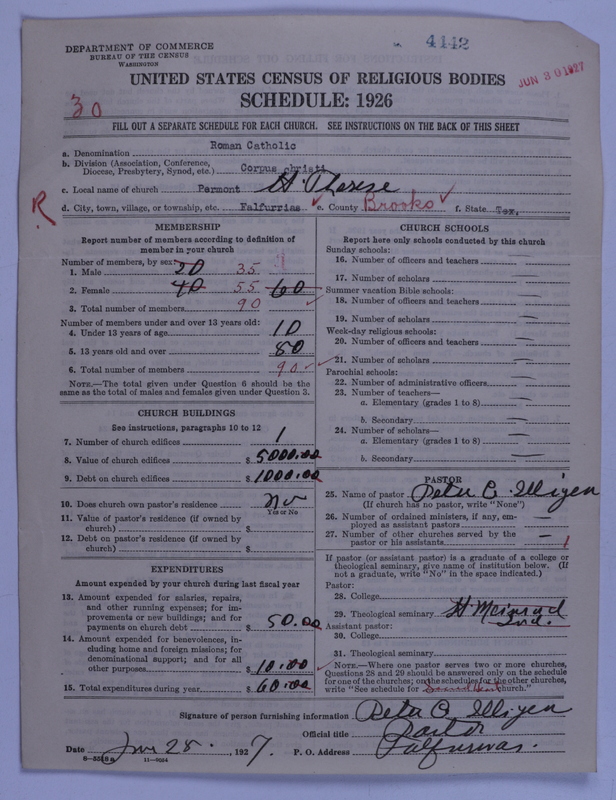 DEPARTMENT OF COMMERCE
BUREAU OF THE CENSUS
WASHINGTON
4442
JUN 30 1927
UNITED STATES CENSUS OF RELIGIOUS BODIES
SCHEDULE: 1926
30
FILL OUT A SEPARATE SCHEDULE FOR EACH CHURCH. SEE INSTRUCTIONS ON THE BACK OF THIS SHEET
a. Denomination Roman Catholic
b. Division (Association, Conference, Diocese, Presbytery, Synod, etc.) Corpus christi
c. Local name of church Permont St. Therese
R
d. City, town, village, or township, etc. Falfurrias e. County Brooks f. State Tex.
MEMBERSHIP
Report number of members according to definition of
member in your church
Number of members, by sex:
1. Male 50 35
2. Female 40 55 60
3. Total number of members 90
Number of members under and over 13 years old:
4. Under 13 years of age 10
5. 13 years old and over 80
6. Total number of members 90
NOTE.—The total given under Question 6 should be the
same as the total of males and females given under Question 3.
CHURCH BUILDINGS
See instructions, paragraphs 10 to 12
7. Number of church edifices 1
8. Value of church edifices $ 5000.00
9. Debt on church edifices $ 1000.00
10. Does church own pastor's residence? no
Yes or No
11. Value of pastor's residence (if owned by
church) $
12. Debt on pastor's residence (if owned by
church) $
EXPENDITURES
Amount expended by your church during last fiscal year
13. Amount expended for salaries, repairs,
and other running expenses; for im-
provements or new buildings; and for
payments on church debt $ 50.00
14. Amount expended for benevolences, in-
cluding home and foreign missions; for
denominational support; and for all
other purposes $ 10.00
15. Total expenditures during year $ 60.00
CHURCH SCHOOLS
Report here only schools conducted by this church
Sunday schools:
16. Number of officers and teachers —
17. Number of scholars —
Summer vacation Bible schools:
18. Number of officers and teachers —
19. Number of scholars —
Week-day religious schools:
20. Number of officers and teachers —
21. Number of scholars —
Parochial schools:
22. Number of administrative officers —
23. Number of teachers—
a. Elementary (grades 1 to 8) —
b. Secondary —
24. Number of scholars—
a. Elementary (grades 1 to 8) —
b. Secondary —
PASTOR
25. Name of pastor Peter
(If church has no pastor, write "None")
26. Number of ordained ministers, if any, em-
ployed as assistant pastors —
27. Number of other churches served by the
pastor or his assistants — 1
If pastor (or assistant pastor) is a graduate of a college or
theological seminary, give name of institution below. (If
not a graduate, write "No" in the space indicated.)
Pastor:
28. College
29. Theological seminary St Meinrad
Ind.
Assistant pastor:
30. College
31. Theological seminary
NOTE.—Where one pastor serves two or more churches,
Questions 28 and 29 should be answered only on the schedule
for one of the churches; on the schedules for the other churches,
write "See schedule for Sacred Heart church."
Signature of person furnishing information Peter
Official title Pastor
Date June 28. 1927. P. O. Address Falfurrias.
8-5518a 11-9664